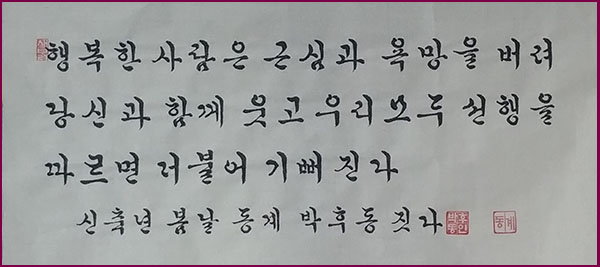 행복한 사람은 근심과 욕망을 버려
당신과 함께 웃고 우리 모두 선행을
따르면 더불어 기뻐진다
신축년 봄날 동계 박후동 짓다 박후동인 동계